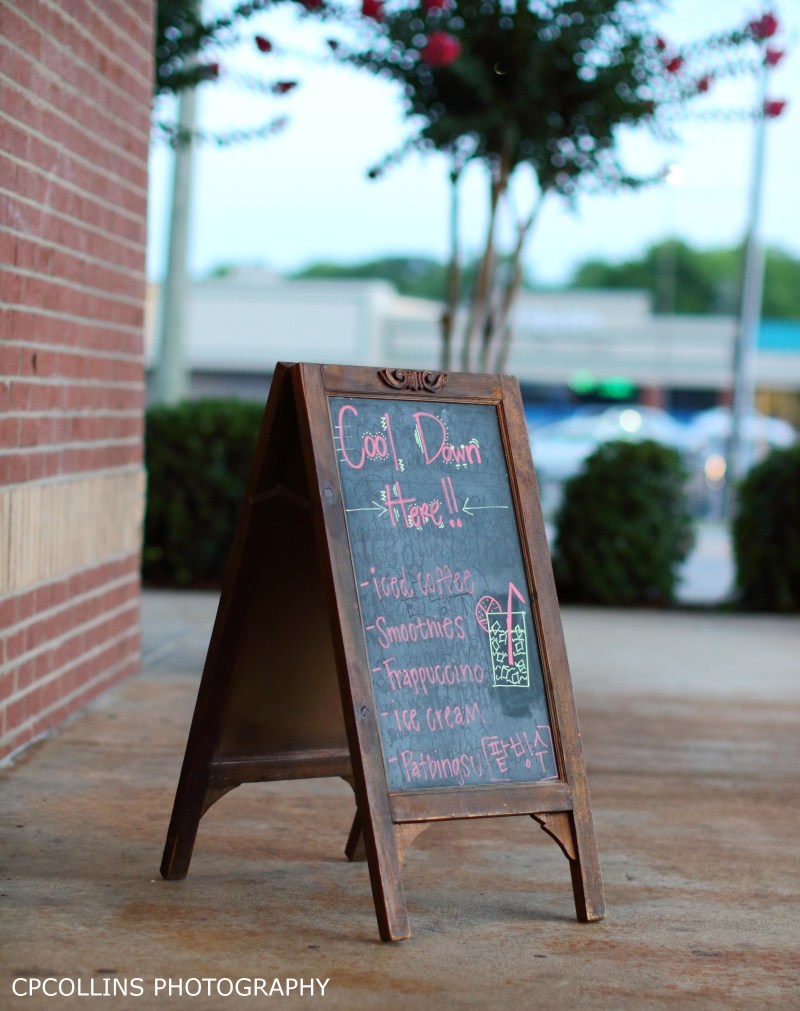 Cool Down
Here!!
-iced coffee
-Smoothies
-Frappuccino
-ice cream
-Patbingsu [팥빙수]
CPCOLLINS PHOTOGRAPHY